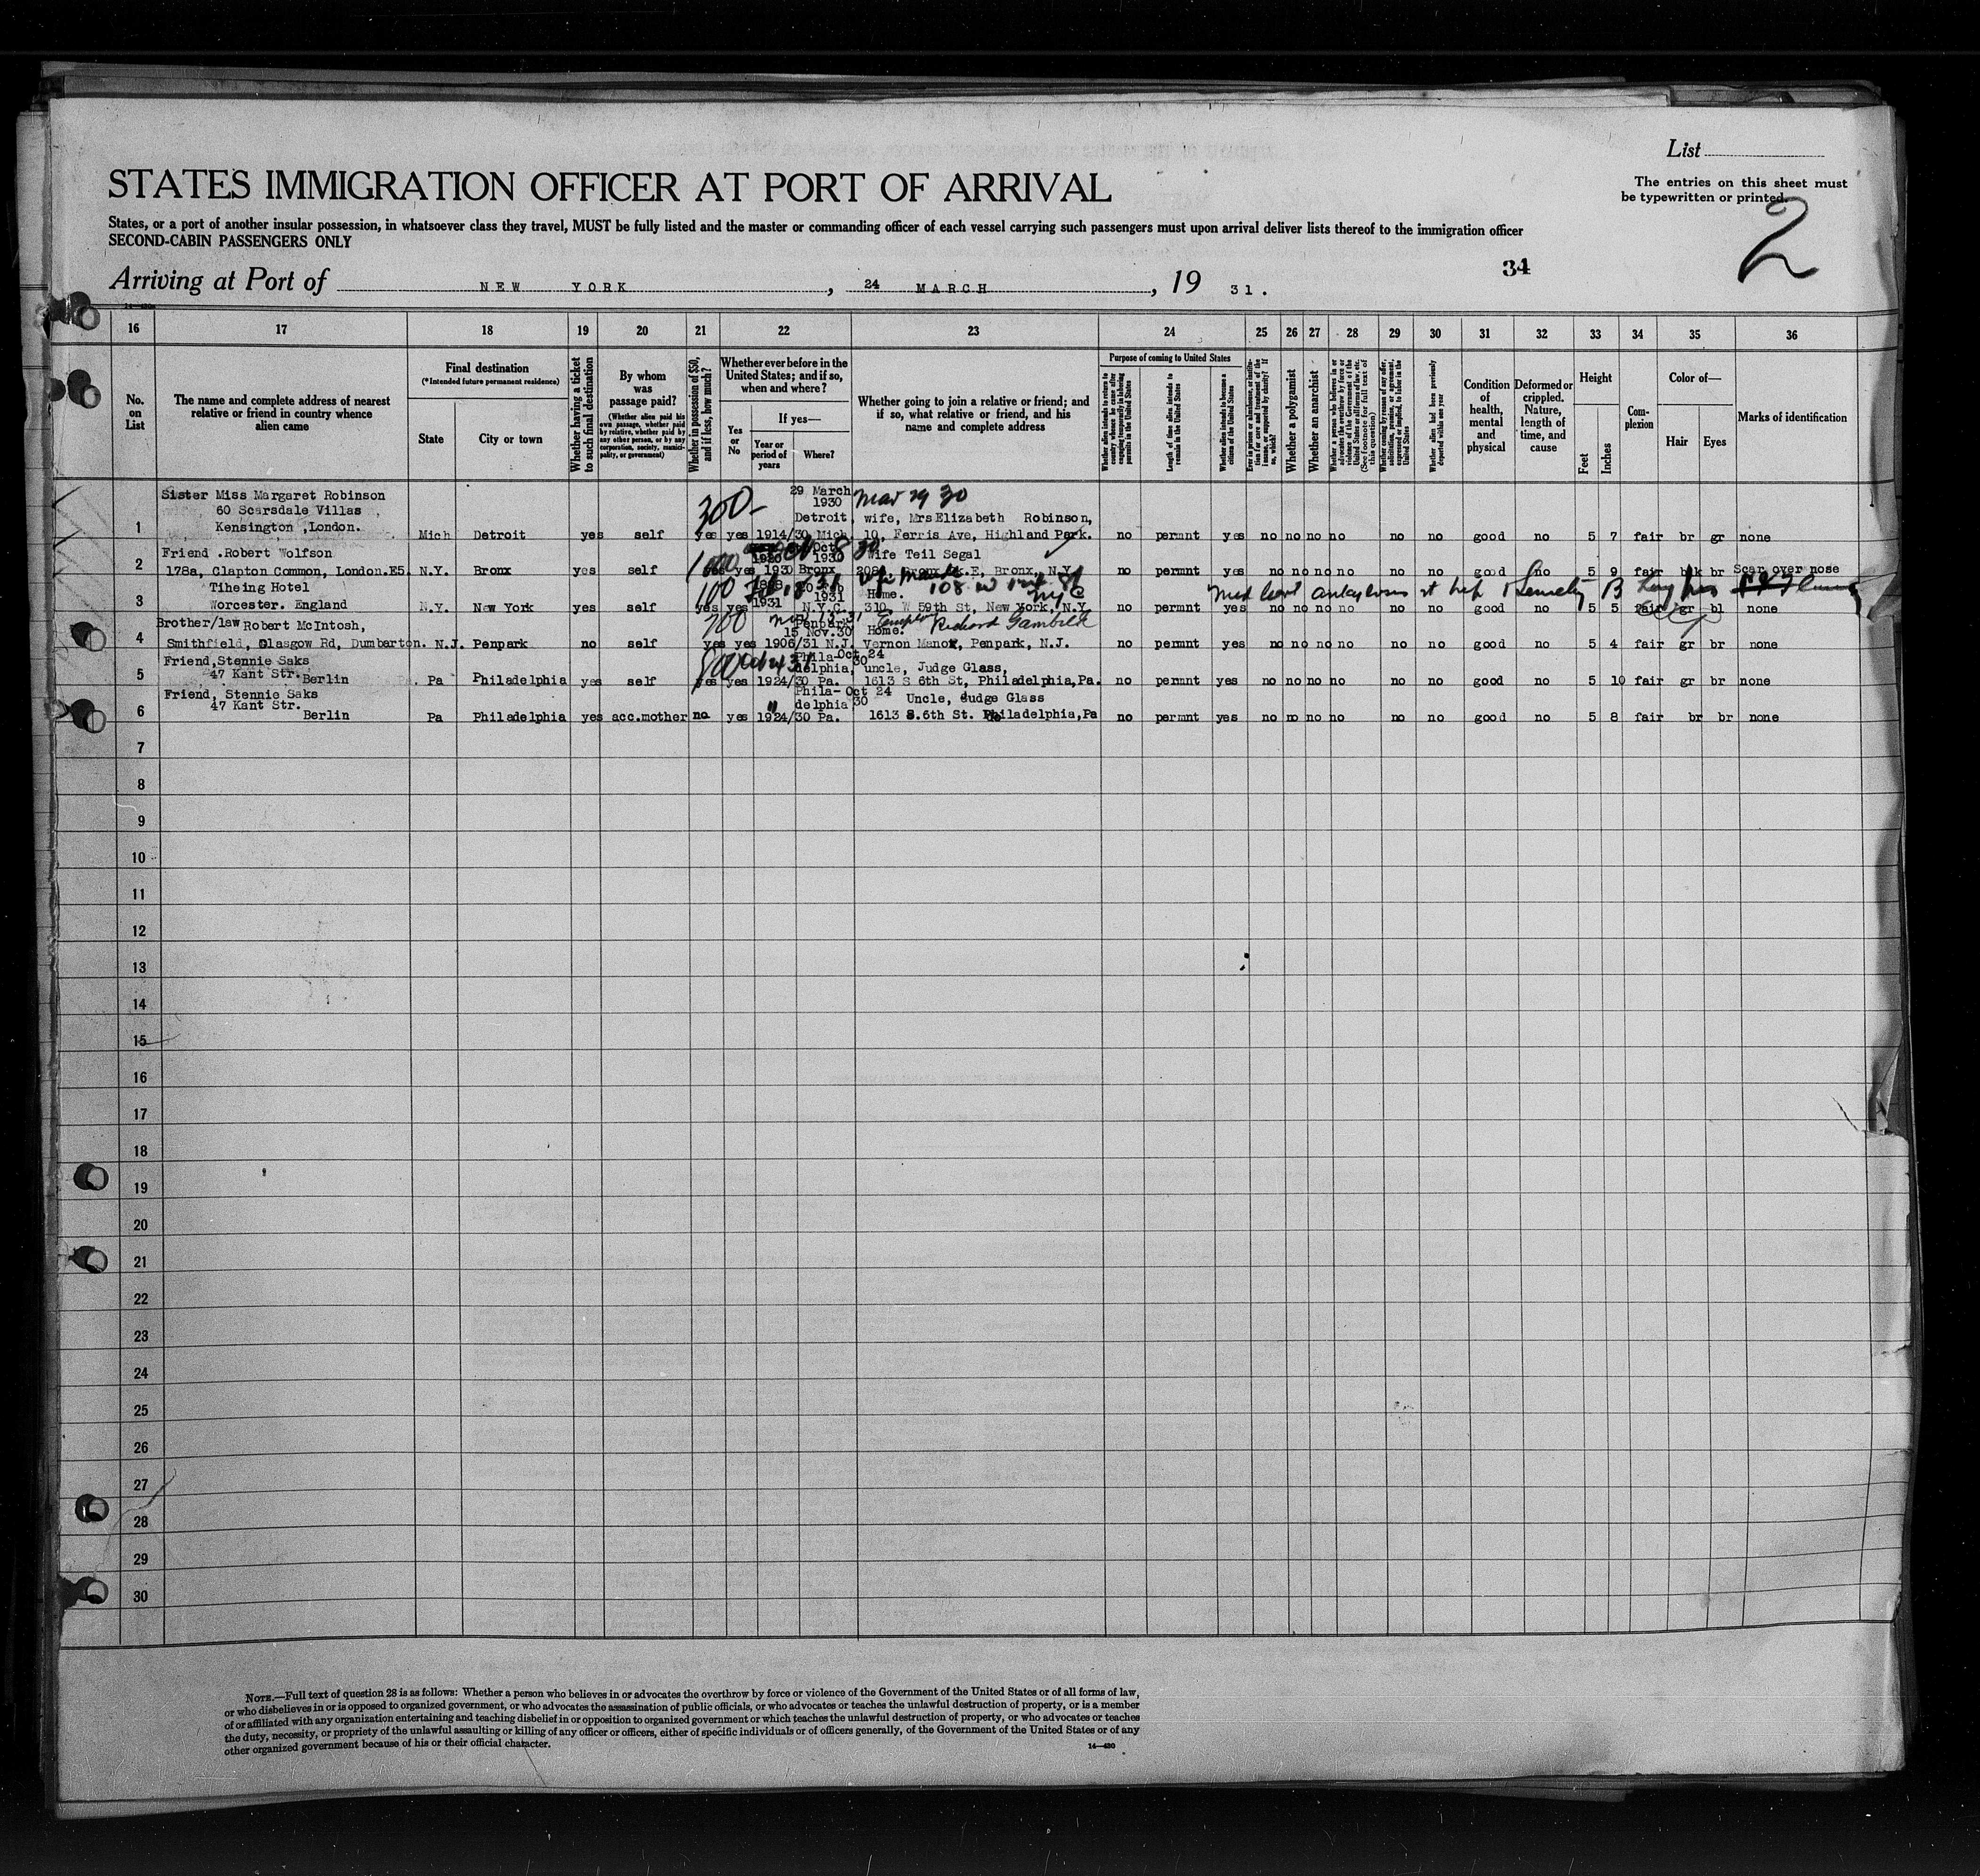 List
The entries on this sheet must
be typewritten or printed.
2
34
STATES IMMIGRATION OFFICER AT PORT OF ARRIVAL
States, or a port of another insular possession, in whatsoever class they travel, MUST be fully listed and the master or commanding officer of each vessel carrying such passengers must upon arrival deliver lists thereof to the immigration officer
SECOND-CABIN PASSENGERS ONLY
Arriving at Port of NEW YORK, 24 MARCH, 19 31.
16 17 18 19 20 21 22 23 24 25 26 27 28 29 30 31 32 33 34 35 36
No. on List
The name and complete address of nearest
relative or friend in country whence
alien came
Final destination
(*Intended future permanent residence)
State
City or town
Whether having a ticket
to such final destination
By whom
was
passage paid?
(Whether alien paid his
own passage, whether paid
by relative, whether paid by
any other person, or by any
corporation, society, munici-
pality, or government)
Whether in possession of $50,
and if less, how much?
Whether ever before in the
United States; and if so,
when and where?
Yes
or
No
If yes—
Year or
period of
years
Where?
Whether going to join a relative or friend; and
if so, what relative or friend, and his
name and complete address
Purpose of coming to United States
Length of time alien intends to
remain in the United States
Whether alien intends to become a
citizen of the United States
Whether a polygamist
Whether an anarchist
Whether alien had been previously
deported within one year
Condition
of
health,
mental
and
physical
Deformed or
crippled.
Nature,
length of
time, and
cause
Height
Feet
Inches
Com-
plexion
Color of—
Hair
Eyes
Marks of identification
Sister Miss Margaret Robinson
60 Scarsdale Villas
Kensington, London.
300-
29 March
1930
Mar 29 30
Detroit, wife, Mrs Elizabeth Robinson,
1 Mich Detroit yes self yes yes 1914/30 Mich 10, Ferris Ave, Highland Park. no permnt yes no no no no no no good no 5 7 fair br gr none
Friend .Robert Wolfson
Oct 8 30
1930
Wife Teil Segal
2 178a, Clapton Common, London.E5. N.Y. Bronx yes self 1000 yes 1930 Bronx E, Bronx, N.Y. no permnt yes no no no no no no good no 5 9 fair blk br Scar over nose
Tiheing Hotel
100
1931
Home.
108 W
NYC
3 Worcester. England N.Y. New York yes self yes yes 1931 N.Y.C. 310, W 59th St, New York, N.Y. no permnt yes no no no no no no good no 5 5 fair gr bl none
Brother/law Robert McIntosh,
700
Penpark
15 Nov.30
Home.
Richard Gambill
4 Smithfield, Glasgow Rd, Dumbarton. N.J. Penpark no self yes yes 1906/31 N.J. Vernon Manor, Penpark, N.J. no permnt yes no no no no no no good no 5 4 fair gr br none
Friend, Stennie Saks
47 Kant Str.
Phila- Oct 24
delphia, 30
uncle, Judge Glass,
5 Berlin Pa Philadelphia yes self yes yes 1924/30 Pa. 1613 S 6th St, Philadelphia, Pa. no permnt yes no no no no no no good no 5 10 fair gr br none
Friend, Stennie Saks
47 Kant Str.
Phila- Oct 24
delphia 30
Uncle, Judge Glass
6 Berlin Pa Philadelphia yes acc.mother no yes 1924/30 Pa. 1613 S.6th St. Philadelphia,Pa no permnt yes no no no no no no good no 5 8 fair br br none
7
8
9
10
11
12
13
14
15
16
17
18
19
20
21
22
23
24
25
26
27
28
29
30
NOTE.—Full text of question 28 is as follows: Whether a person who believes in or advocates the overthrow by force or violence of the Government of the United States or of all forms of law,
or who disbelieves in or is opposed to organized government, or who advocates the assassination of public officials, or who advocates or teaches the unlawful destruction of property, or is a member
of or affiliated with any organization entertaining and teaching disbelief in or opposition to organized government or which teaches the unlawful destruction of property, or who advocates or teaches
the duty, necessity, or propriety of the unlawful assaulting or killing of any officer or officers, either of specific individuals or of officers generally, of the Government of the United States or of any
other organized government because of his or their official character.
14—430